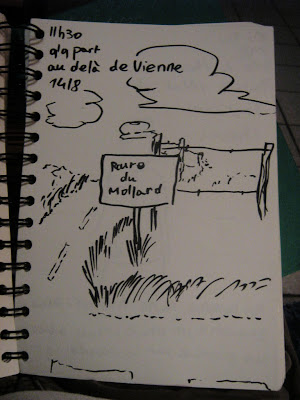 11h30
q/q part
au delà de Vienne
14/8
Ruro
du
Mollard